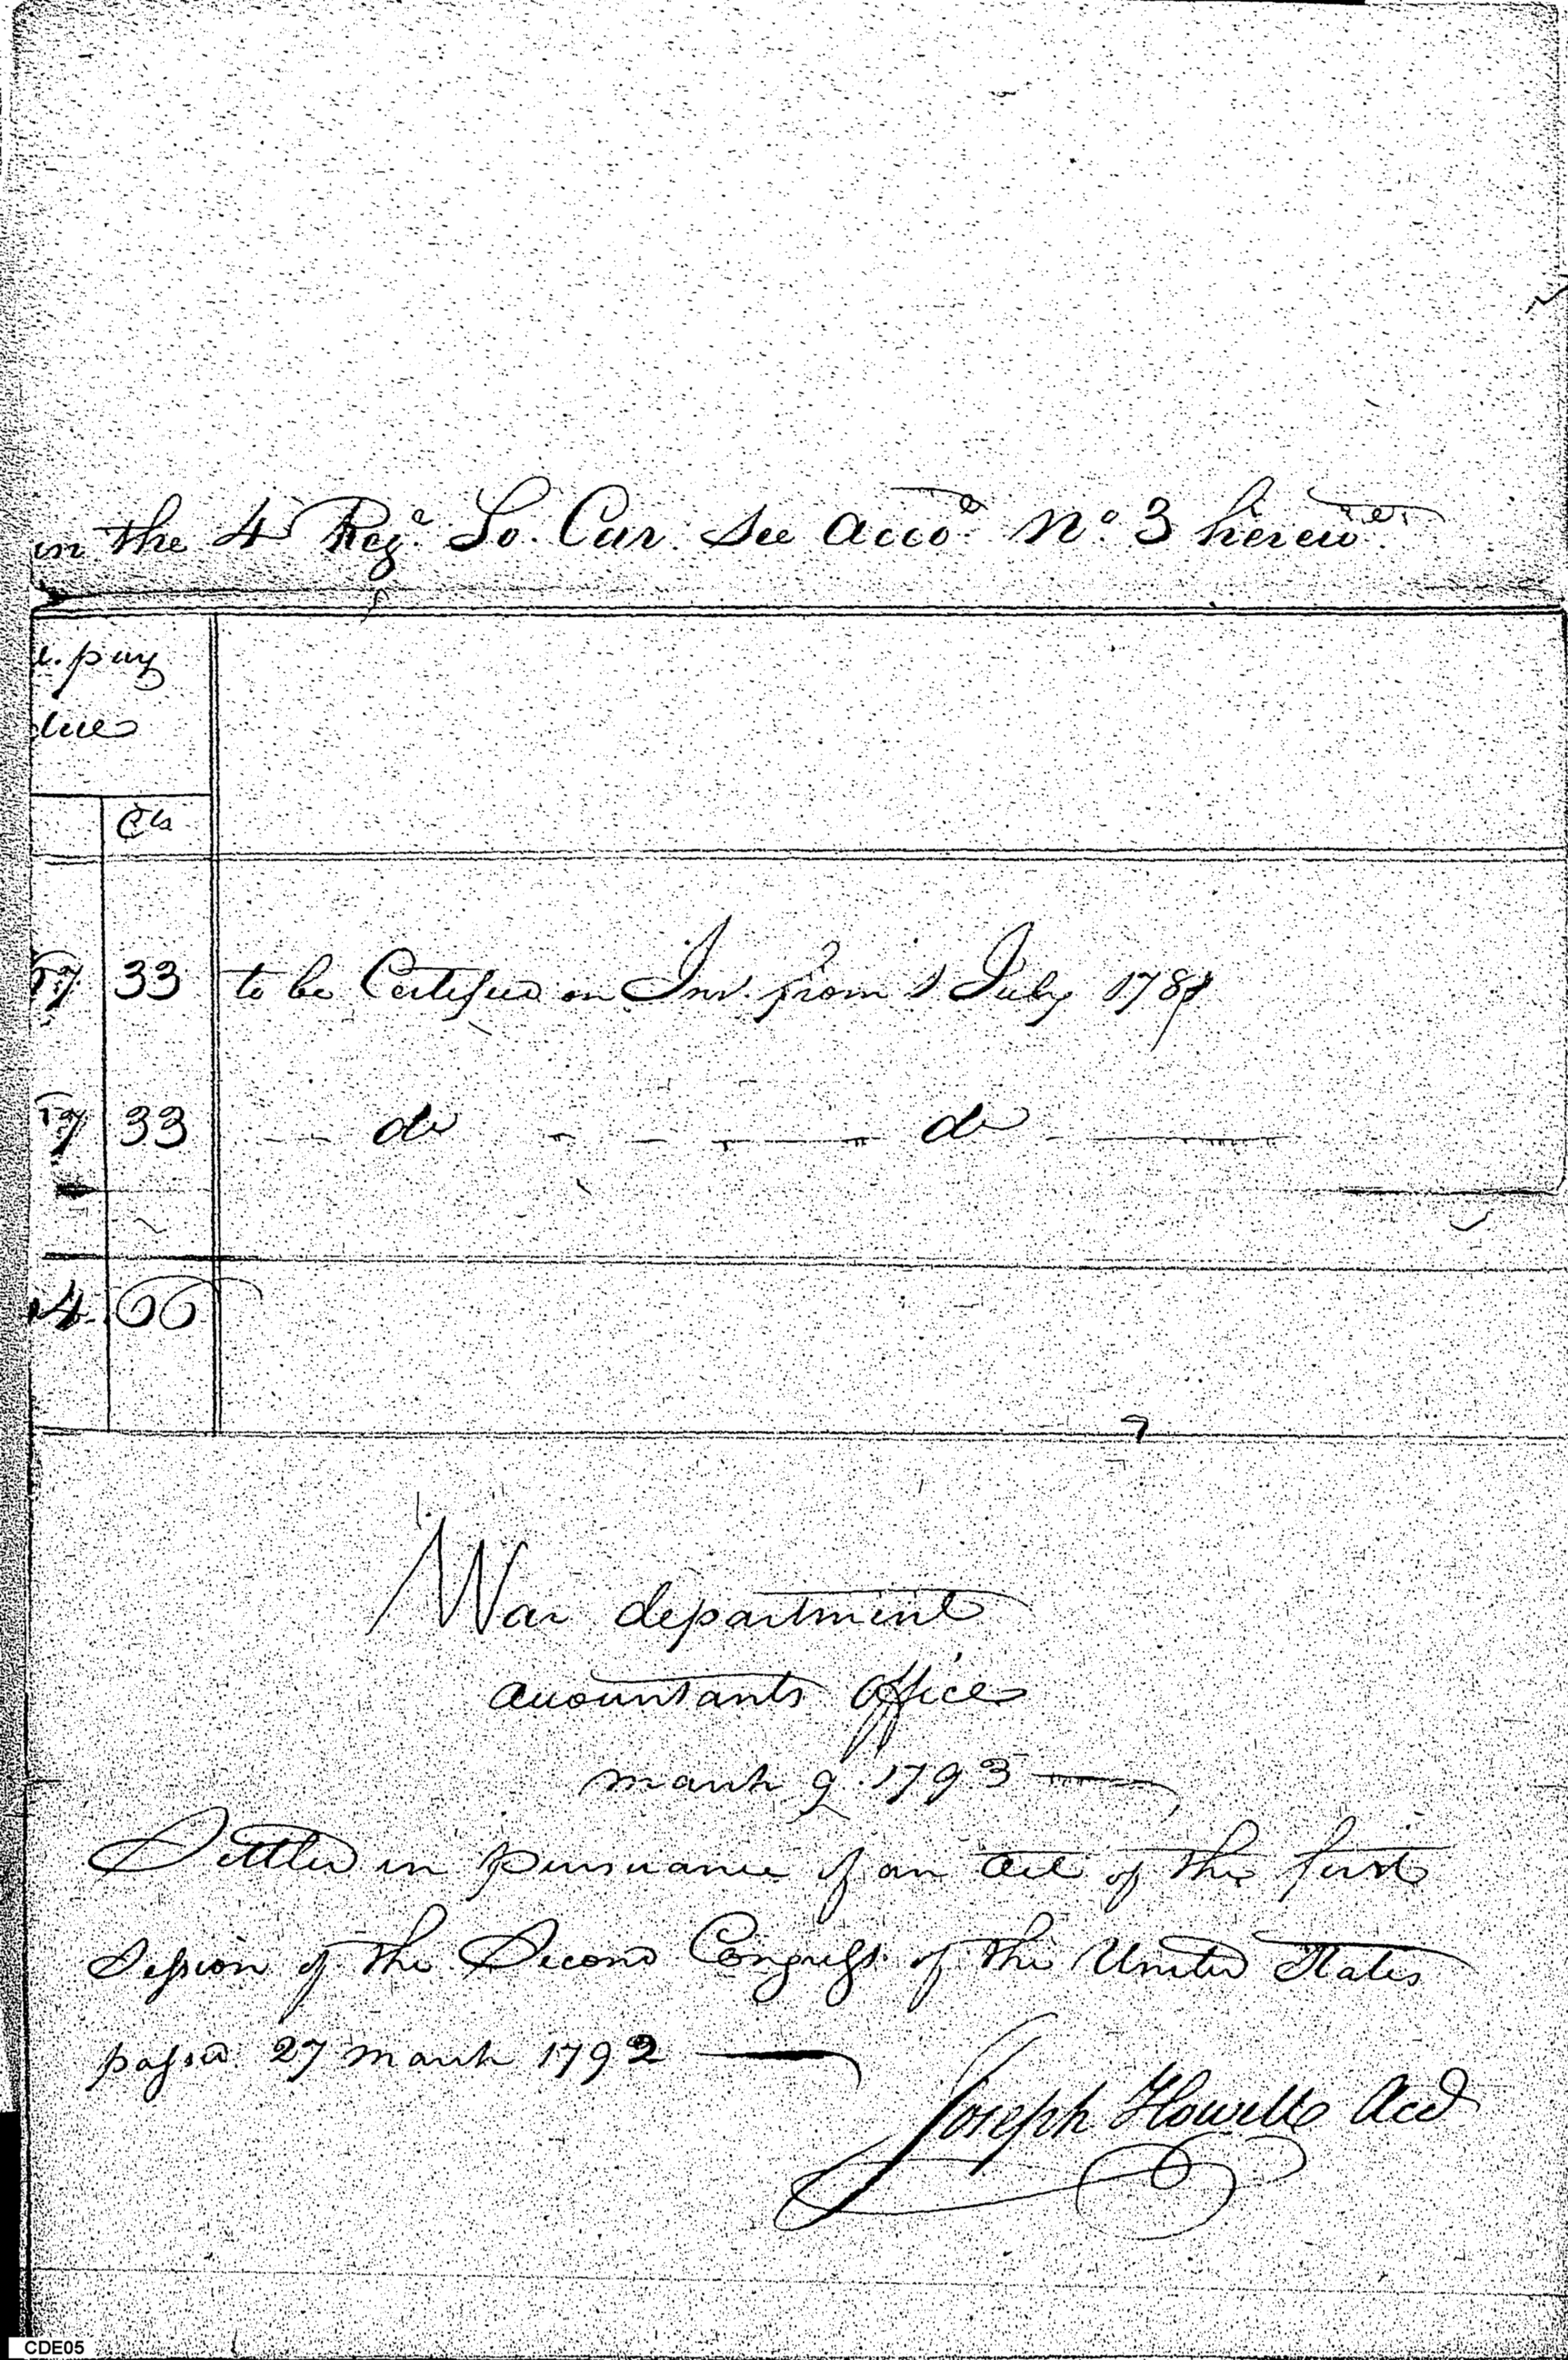 in the 4 Reg.t So. Car. See Acco.t No. 3 herew.
pay
due
Cts
33 to be Certified on Int. from 1 July 1781
33 do do
4 66
War department
accountants office
march 9. 1793
Settled in pursuance of an act of the first
Session of the Second Congress of the United States
passed 27 march 1792
Joseph Howell Acct
CDE05